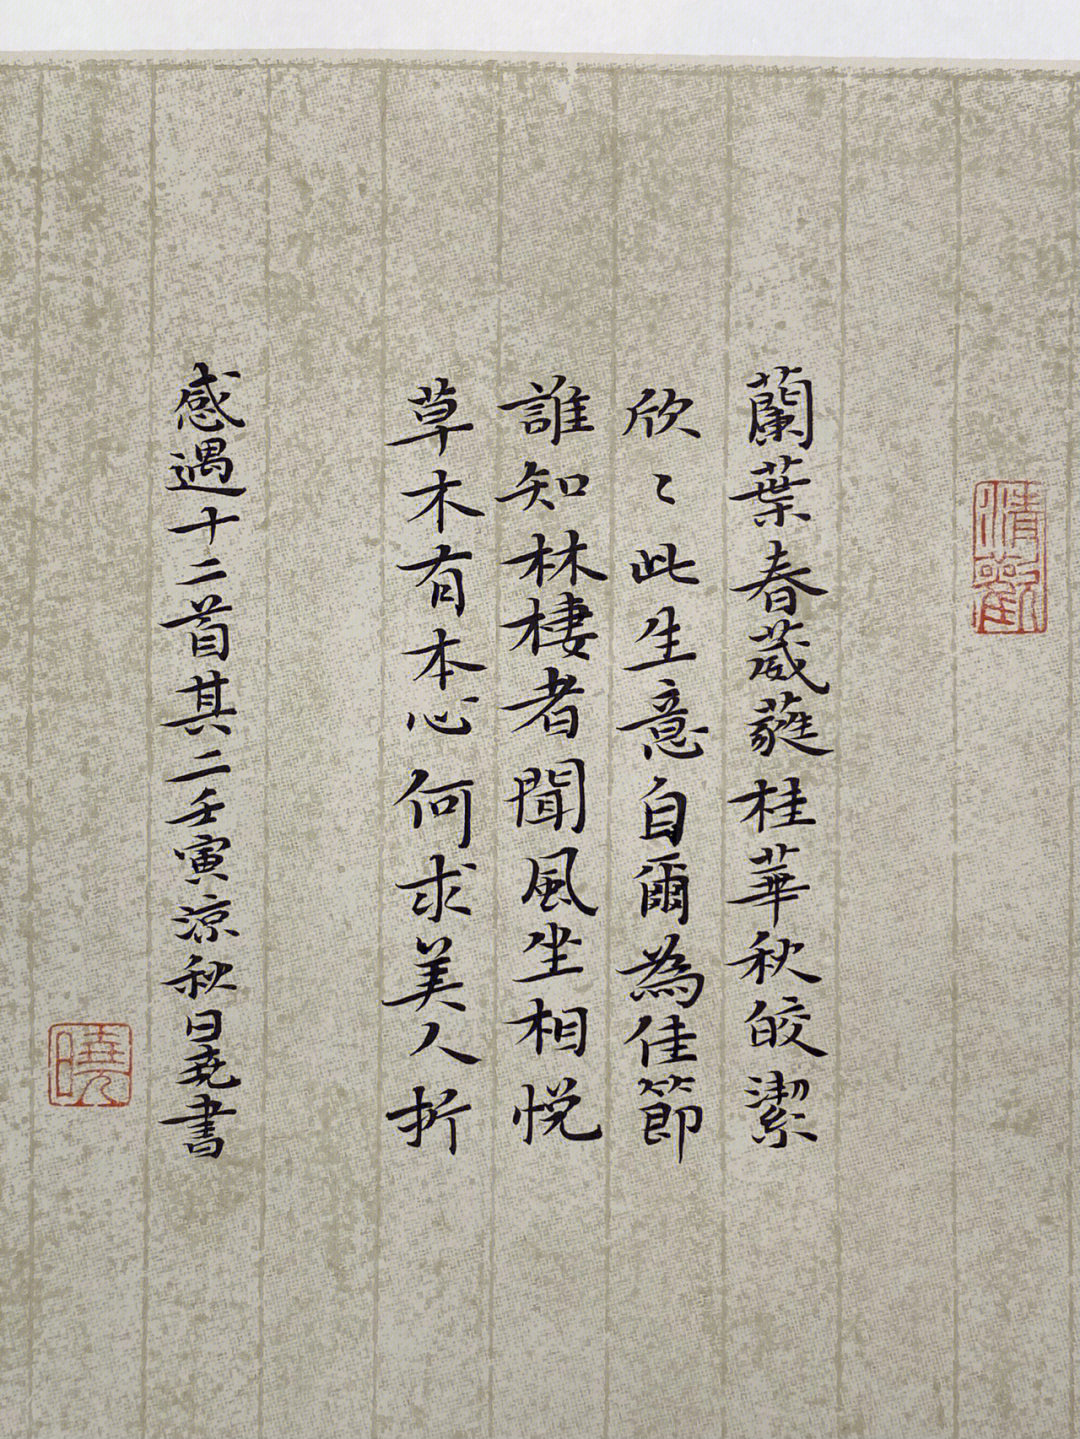 清歡
蘭葉春葳蕤桂華秋皎潔
欣〻此生意自爾為佳節
誰知林棲者聞風坐相悅
草木有本心何求美人折
感遇十二首其二壬寅涼秋日尭書
曉